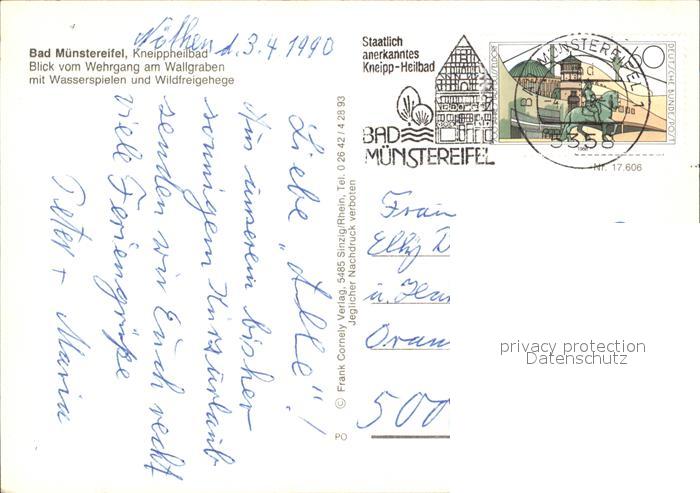 Nöthen d. 3.4.1990
Bad Münstereifel, Kneippheilbad
Blick vom Wehrgang am Wallgraben
mit Wasserspielen und Wildfreigehege
Liebe „Alle"!
Aus unserem bisher
sonnigem Kurzurlaub
senden wir Euch recht
viele Feriengrüße
Peter + Maria
© Frank Cornely Verlag, 5485 Sinzig/Rhein, Tel. 0 26 42 / 4 28 93
Jeglicher Nachdruck verboten
PO
Staatlich
anerkanntes
Kneipp-Heilbad
BAD
MÜNSTEREIFEL
MÜNSTEREIFEL 1
5358
60
DEUTSCHE BUNDESPOST
Nr. 17.606
Frau
Elly
u.
Oran
500
privacy protection
Datenschutz